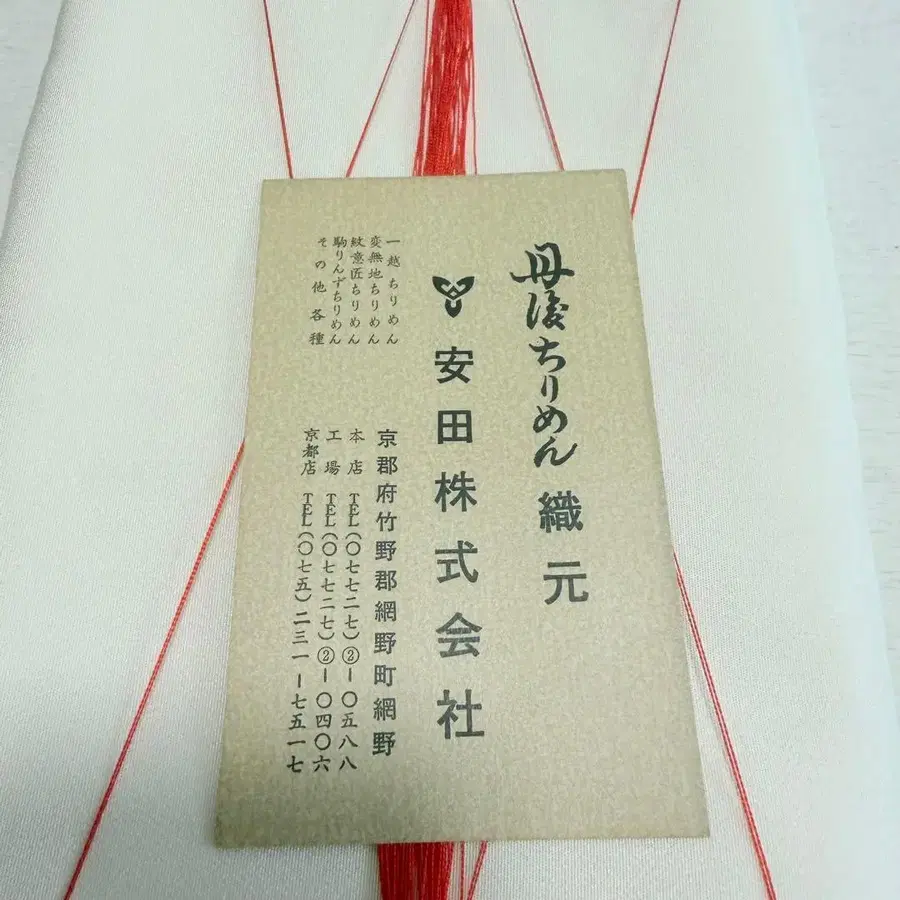 丹後ちりめん 織元
安田株式会社
京都府竹野郡網野町網野
本店 TEL(〇七七二七)②-〇五八八
工場 TEL(〇七七二七)②-〇四〇六
京都店 TEL(〇七五)二三一-七五一七
一越ちりめん
変無地ちりめん
紋意匠ちりめん
駒りんずちりめん
その他各種